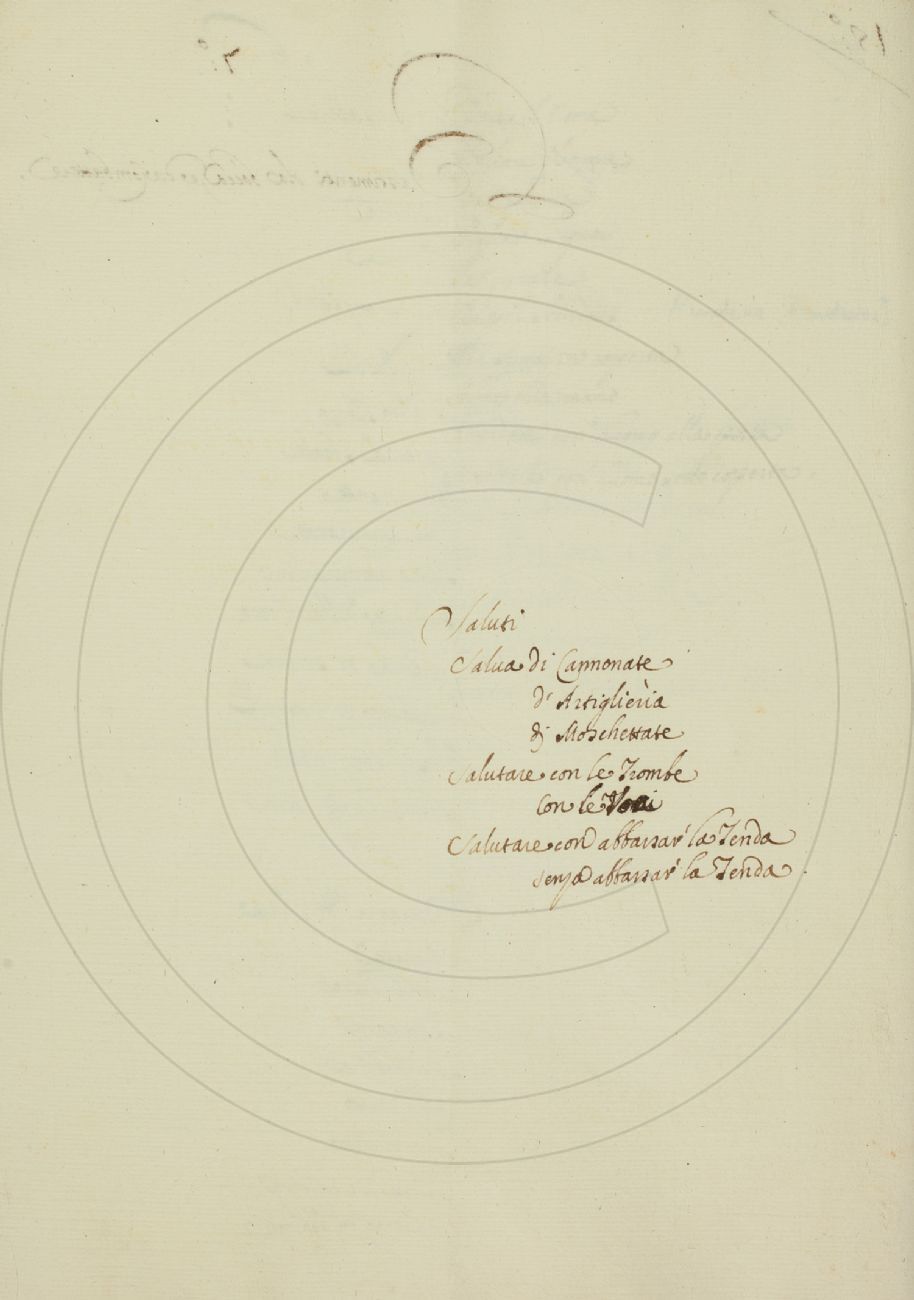 Saluti
Salua di Cannonate
d'Artiglieria
di Moschettate
Salutare con le Trombe
con le Voci
Salutare con abbassar' la Tenda
senza abbassar' la Tenda